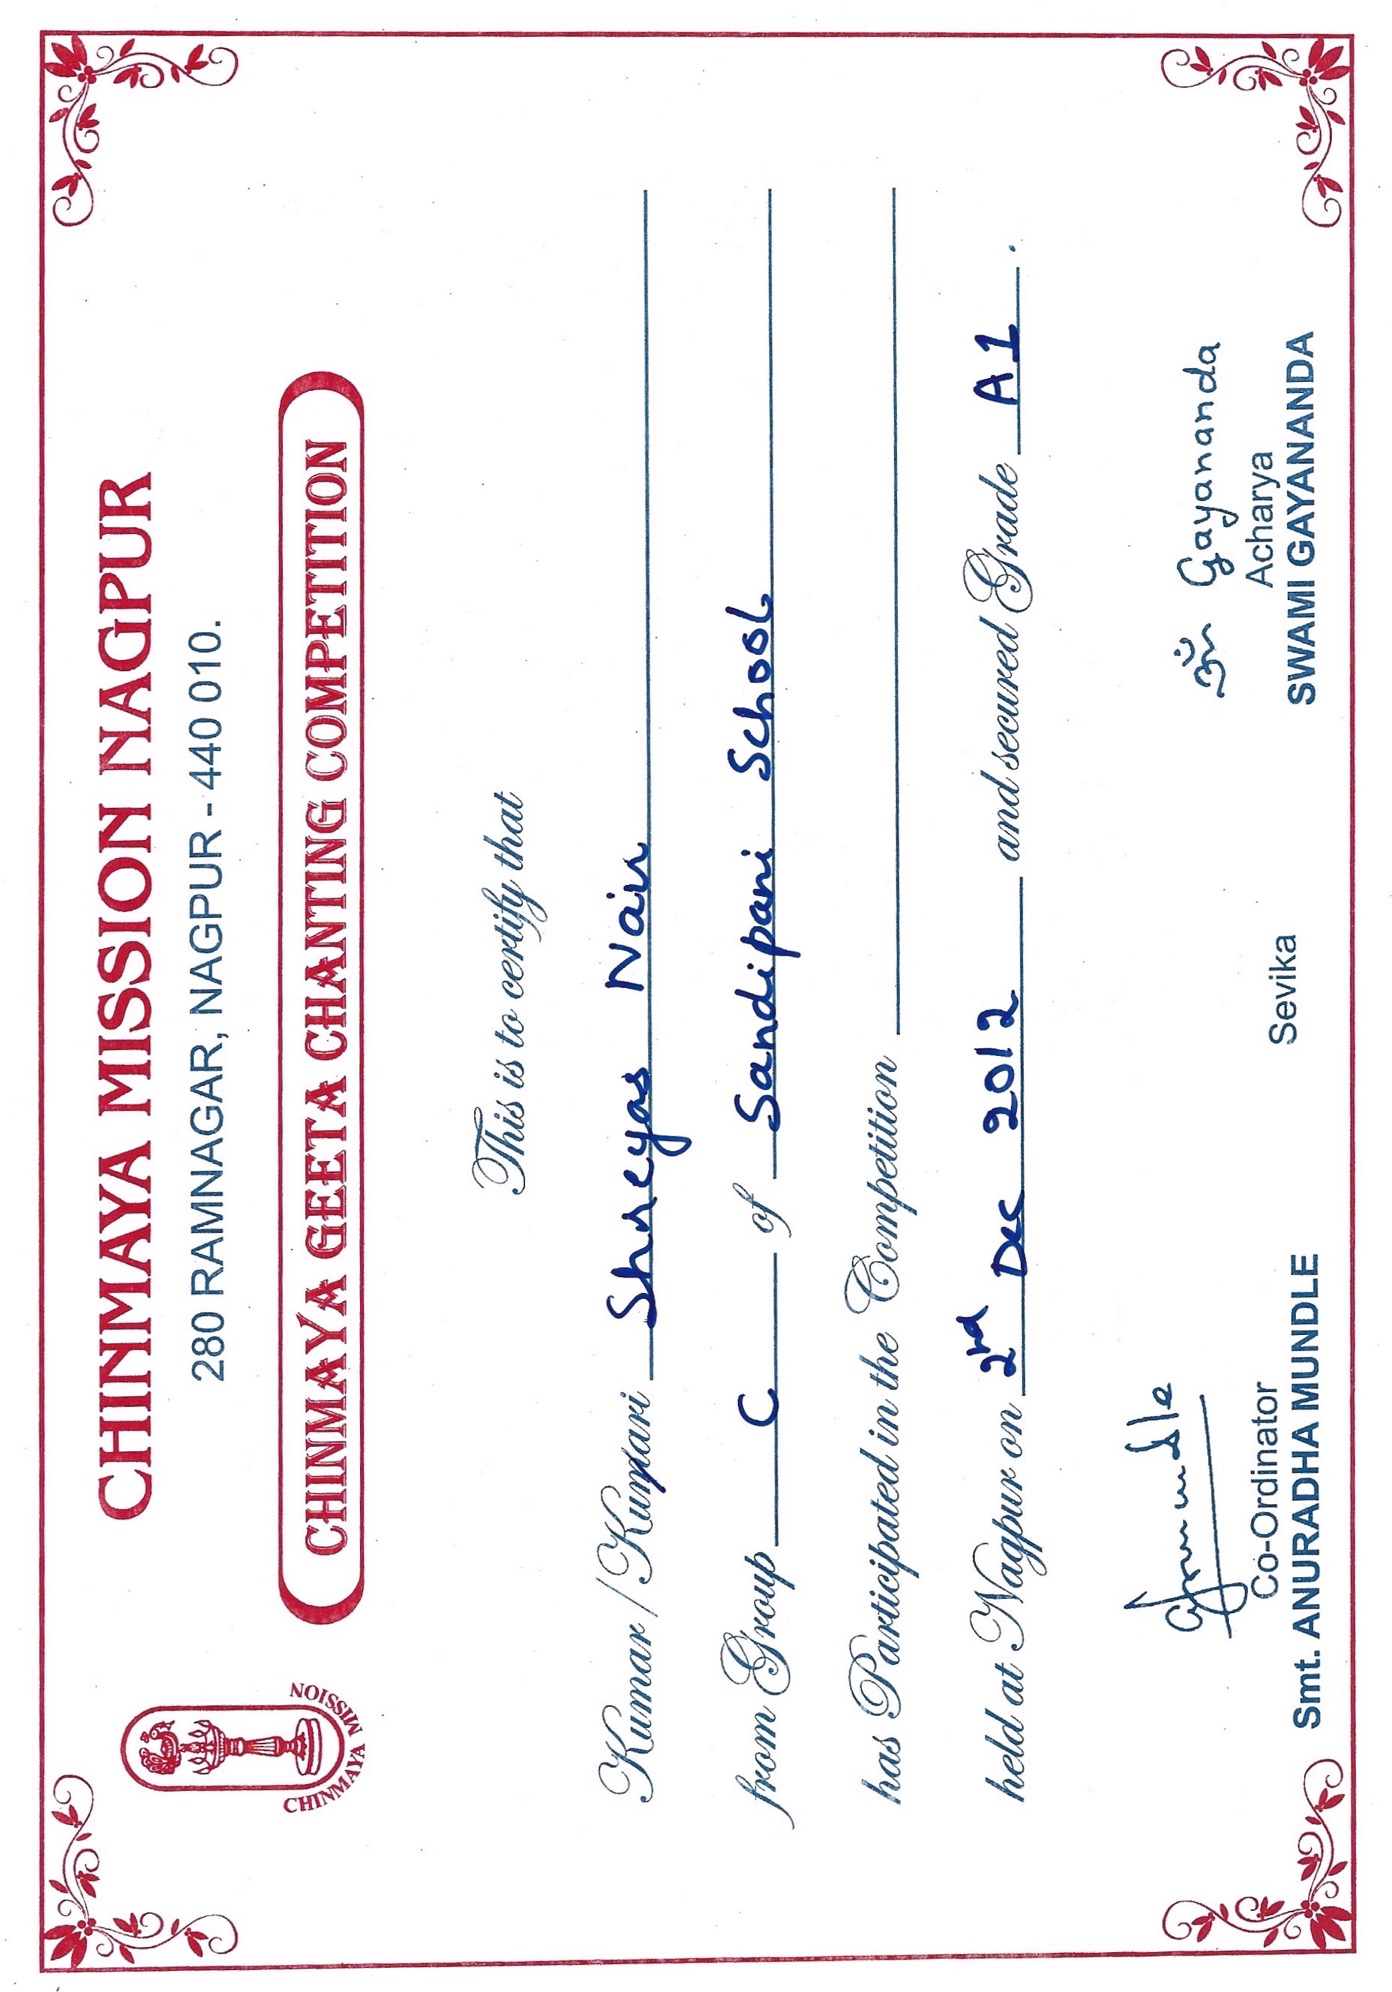 CHINMAYA MISSION NAGPUR
280 RAMNAGAR, NAGPUR - 440 010.
CHINMAYA MISSION
CHINMAYA GEETA CHANTING COMPETITION
This is to certify that
Kumar / Kumari Shreyas Nair
from Group C of Sandipani School
has Participated in the Competition
held at Nagpur on 2nd Dec 2012 and secured Grade A1 .
Mundle
ॐ Gayananda
Co-Ordinator
Smt. ANURADHA MUNDLE
Sevika
Acharya
SWAMI GAYANANDA